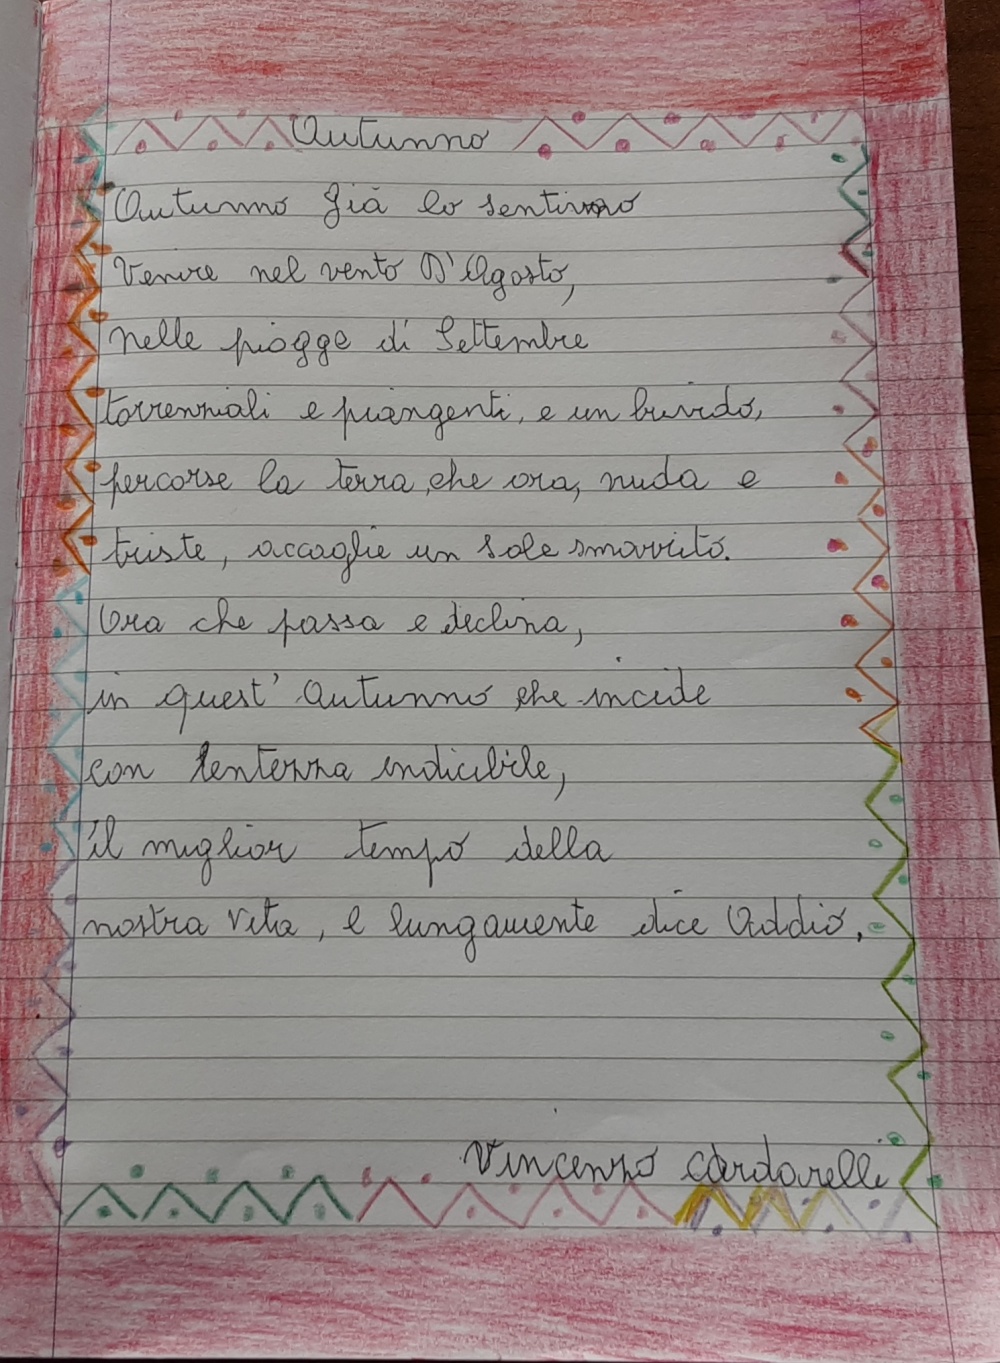 Autunno
Autunno già lo sentimo
Venire nel vento D'Agosto,
nelle piogge di Settembre
torrenziali e piangenti, e un brivido,
percorse la terra, che ora, nuda e
triste, accoglie un sole smarrito.
Ora che passa e declina,
in quest' Autunno che incide
con lentezza indicibile,
il miglior tempo della
nostra vita, e lungamente dice Addio.
Vincenzo Cardarelli